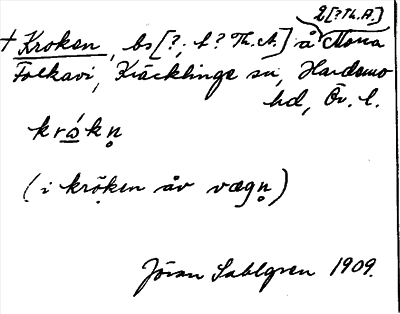 2 [? Th. A.]
† Kroken, bs [?, t? Th. A.] å Mona
Folkavi, Kräcklinge sn, Hardemo
hd, Ör. l.
krókn̥
(i krōken åv vægn̥)
Jöran Sahlgren 1909.